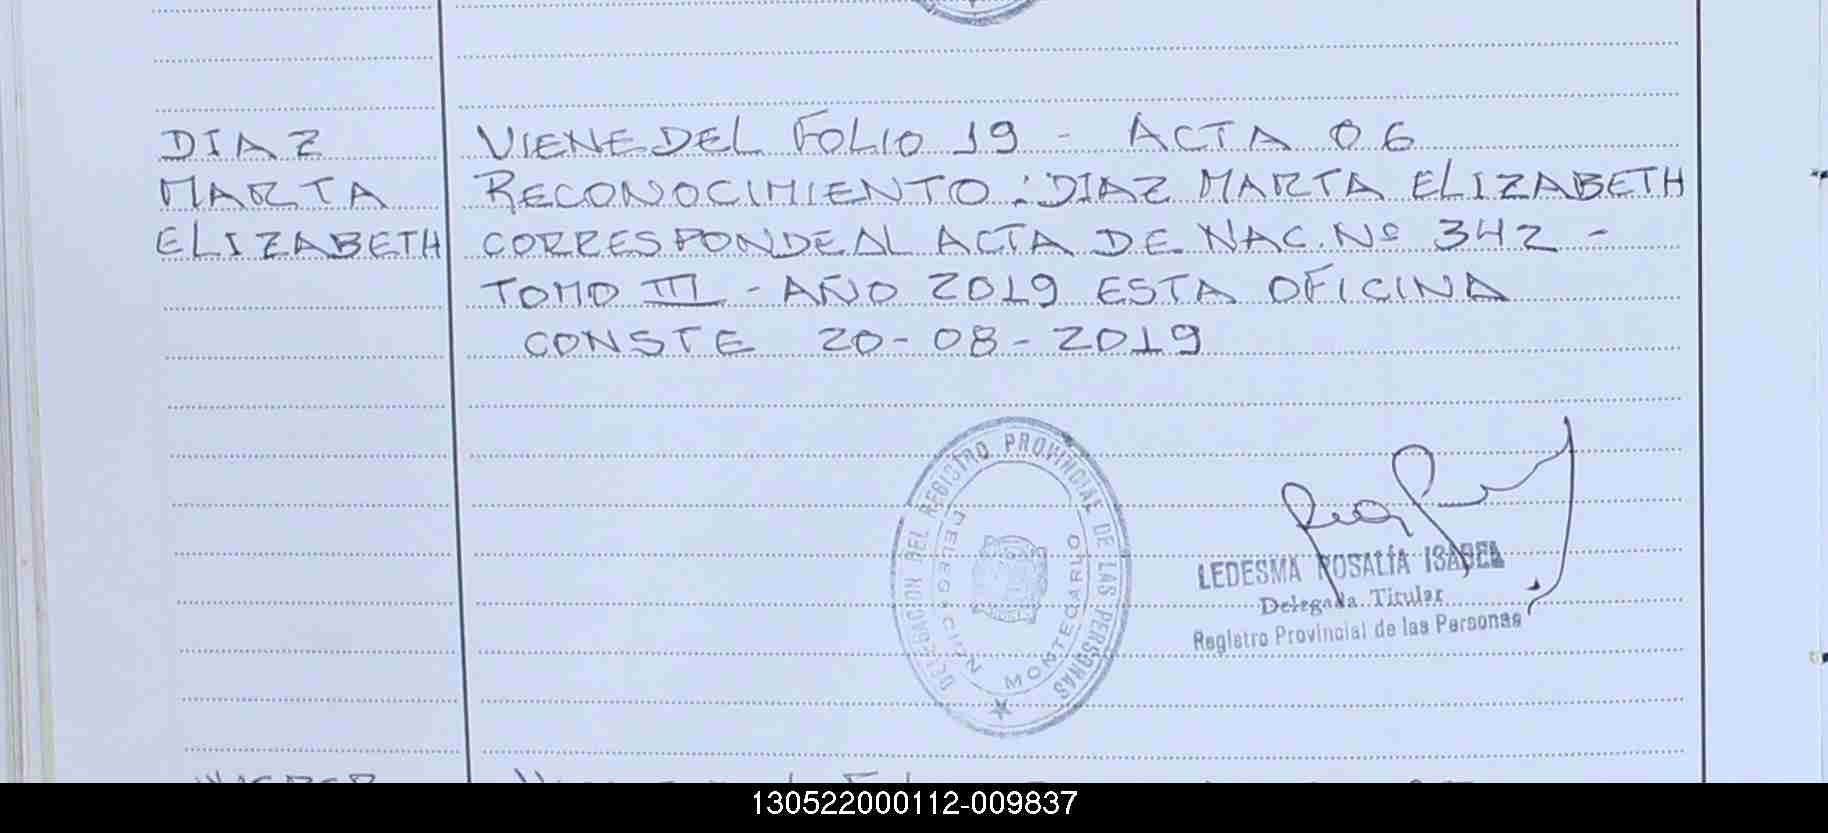 DIAZ
MARTA
ELIZABETH
VIENE DEL FOLIO 19 - ACTA 06
RECONOCIMIENTO: DIAZ MARTA ELIZABETH
CORRESPONDE AL ACTA DE NAC. Nº 342 -
TOMO III - AÑO 2019 ESTA OFICINA
CONSTE 20-08-2019
DELEGACION DEL REGISTRO PROVINCIAL DE LAS PERSONAS
DELEGACION MONTECARLO
LEDESMA ROSALÍA ISABEL
Delegada Titular
Registro Provincial de las Personas
130522000112-009837